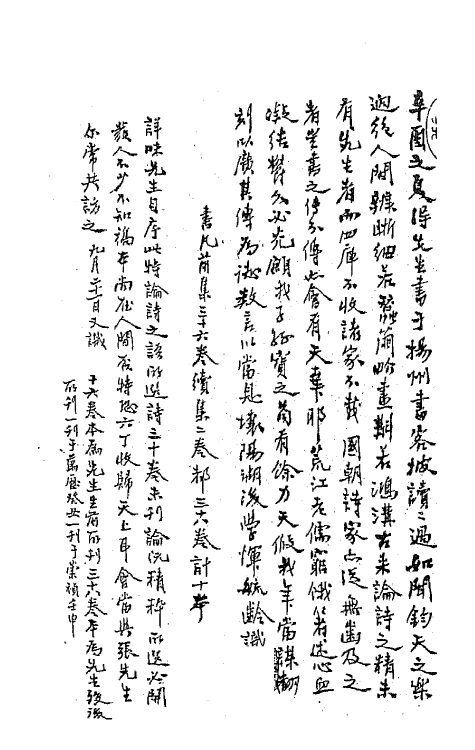 辛酉之夏得先生書于揚州書客披讀一過如聞鈞天之樂
迥絕人間辨晰細若蠶繭畛畫判若鴻溝古來論詩之精未
有先生者而四庫不收諸家不載國朝詩家亦從無齒及之
者豈書之傳不傳亦會有天幸耶荒江老儒窮餓著述心血
凝結鬱久必光願我子孫寶之茍有餘力天假我年當謀翻
刻以廣其傳為誌數言以當息壤陽湖後學惲毓齡識
書凡前集三十六卷續集二卷都三六卷計十本
詳味先生自序此特論詩之語所選詩三十卷未刊論既精粹所選必開
發人不少不知稿本尚在人間否特恐六丁收歸天上耳會當與張先生
尔常共訪之 九月二日又識
十六卷本為先生生前所刊三六卷本為先生歿後
所刊一刊于萬曆癸丑一刊于崇禎壬申